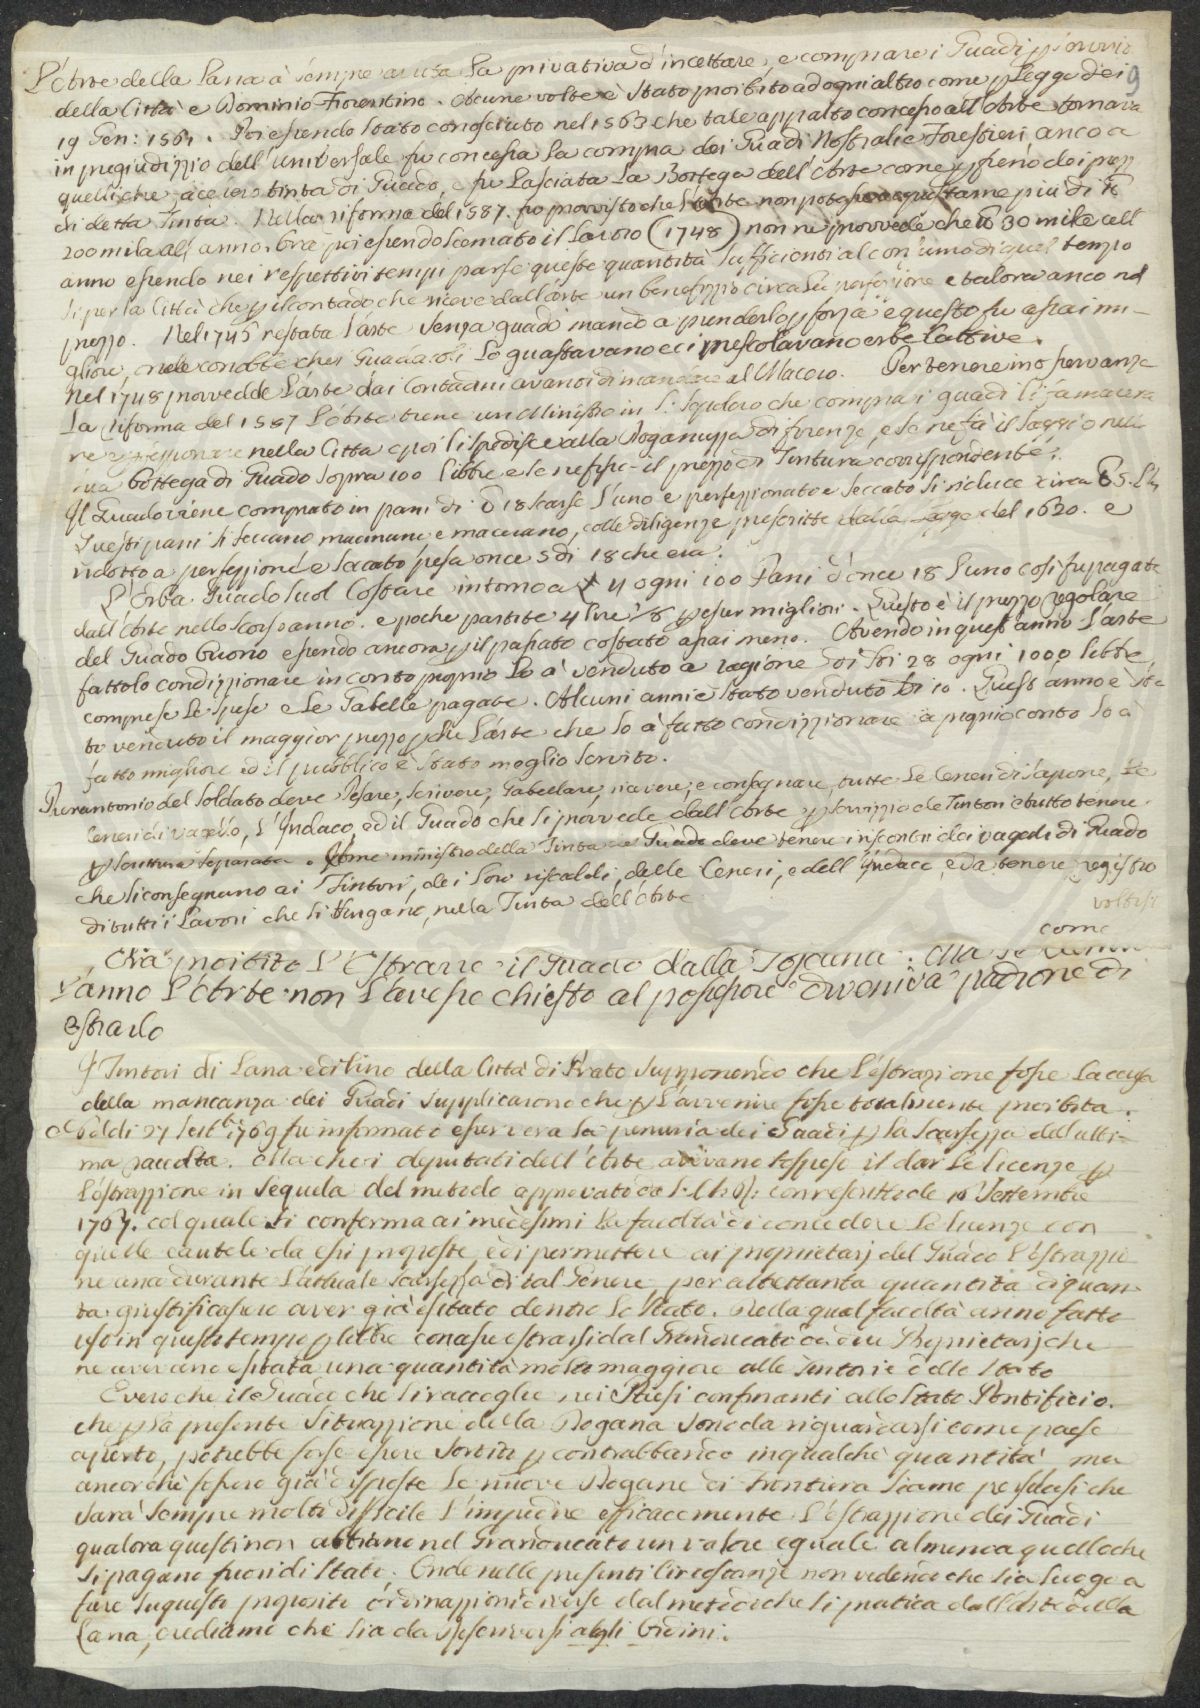 9
L'Arte della Lana à sempre avuta la privativa d'incettare, e comprare i Guadi p servizio
della Città e Dominio Fiorentino. Alcune volte è stato proibito ad ogni altro come p Legge dei
19 Gen: 1561. Poi essendo stato conosciuto nel 1563 che tale appalto concesso all'Arte tornava
in pregiudizzio dell'universale fu concessa la compra dei Guadi Nostrali e Forestieri anco a
quelli che facevano tinta di Guado, e fu Lasciata la Bottega dell'Arte come p freno dei prezzi
di detta Tinta. Nella riforma del 1587 fu provvisto che l'Arte non potesse acquistarne più di
200 mila all'anno. Ora poi essendo scemato il Lavoro (1748) non ne provvede che 30 mila all'
anno essendo nei respettivi tempi parse queste quantità sufficienti al consumo di quel tempo
si per la Città che p il contado che riceve dall'arte un benefizzio circa la perfezzione e talora anco nel
prezzo. Nel 1745 restata l'arte senza guado mandò a prenderlo p forza e questo fu assai mi-
gliore, onde conobbe che i Guadaioli lo guastavano e ci mescolavano erbe cattive.
Nel 1748 provvedde l'arte dai Contadini avanti di mandare al Macero. Per tenere in osservanza
La riforma del 1587 L'Arte tiene un Ministro in S: Sepolcro che compra i guadi li fa macera
re e perfezzionare nella Città e poi li spedisce alla Dogana di Firenze, e se ne fà il saggio nella
sua bottega di Guado sopra 100 libbre e se ne fissa il prezzo di Tintura corrispondente.
Il Guado viene comprato in pani di 18 scarse l'uno e perfezzionato e seccato si riduce circa 5
Questi pani si seccano macinano e macerano, colle diligenze prescritte dalla Legge del 1620. e
ridotto a perfezzione e seccato pesa once 5 di 18 che era.
L'Erba Guado suol Costare intorno a 4 ogni 100 Pani d'once 18 l'uno così fu pagata
dall'Arte nello scorso anno. e poche partite 4 lire p esser migliori. Questo è il prezzo regolare
del Guado Buono essendo ancora p il passato costato assai meno. Avendo in quest'anno l'arte
fattolo condizzionare in conto proprio lo à venduto a ragione di 28 ogni 1000 libbre,
comprese le spese e le Gabelle pagate. Alcuni anni è stato venduto 10. Quest'anno è sta
to venduto il maggior prezzo p che l'arte che lo à fatto condizzionare a proprio conto lo à
fatto migliore ed il pubblico è stato meglio servito.
Pierantonio del Soldato deve Pesare, scrivere, Gabellare, ricevere, e consegnare, tutte le Ceneri di sapone, le
Ceneri di vagello, L'Indaco, ed il Guado che si provvede dall'Arte p servizzio de Tintori e tutto tenere
p scrittura separata. Come ministro della Tinta e Guado deve tenere i riscontri dei vagelli di Guado
che si consegnano ai Tintori, dei loro riscaldi, delle Ceneri, e dell'Indaco, e da tenere registro
di tutti i Lavori che si tingano nella Tinta dell'Arte
voltisi
come
Era proibito l'Estrarre il Guado dalla Toscana. Ma se
l'anno l'Arte non l'avesse chiesto al possessore diveniva padrone di
estrarlo
I Tintori di Lana e di Lino della Città di Prato supponendo che l'estrazione fosse La causa
della mancanza dei Guadi supplicarono che p l'avvenire fosse totalmente proibita.
dì 27 Sett 1769 fu informato esser vera la penuria dei Guadi p la scarsezza dell'ulti-
ma raccolta. Ma che i deputati dell'Arte avevano sospeso il dar le licenze p
l'estrazzione in sequela del metodo approvato da S: A: R: con rescritto de 16 Settembre
1767. col quale si conferma ai medesimi la facoltà di concedere le licenze con
quelle cautele da essi proposte, e di permettere ai proprietarj del Guado l'estrazzio
ne anco durante l'attuale scarsezza di tal Genere per altrettanta quantità di quan-
ta giustificassero aver già esitato dentro lo stato. Nella qual facoltà anno fatto
uso in questo tempo p libbre estrarsi dal Granducato da due Proprietarj che
ne avevano esitata una quantità molto maggiore alle Tintorie dello stato
E vero che il Guado che si raccoglie nei Paesi confinanti allo Stato Pontificio.
che p la presente situazzione della Dogana sono da riguardarsi come paese
aperto, potrebbe forse essere sortito p contrabbando in qualche quantità, ma
ancorchè fossero già disposte le nuove Dogane di Frontiera siamo persuasi che
sarà sempre molto difficile l'impedire efficacemente l'estrazzione dei Guadi
qualora questi non abbiano nel Granducato un valore eguale almeno a quello che
si pagano fuori di stato. Onde nelle presenti circostanze non vedendo che sia luogo a
fare su questo proposito ordinazzioni diverse dal metodo che si pratica dall'Arte della
Lana, crediamo che sia da referirsi agli Ordini.